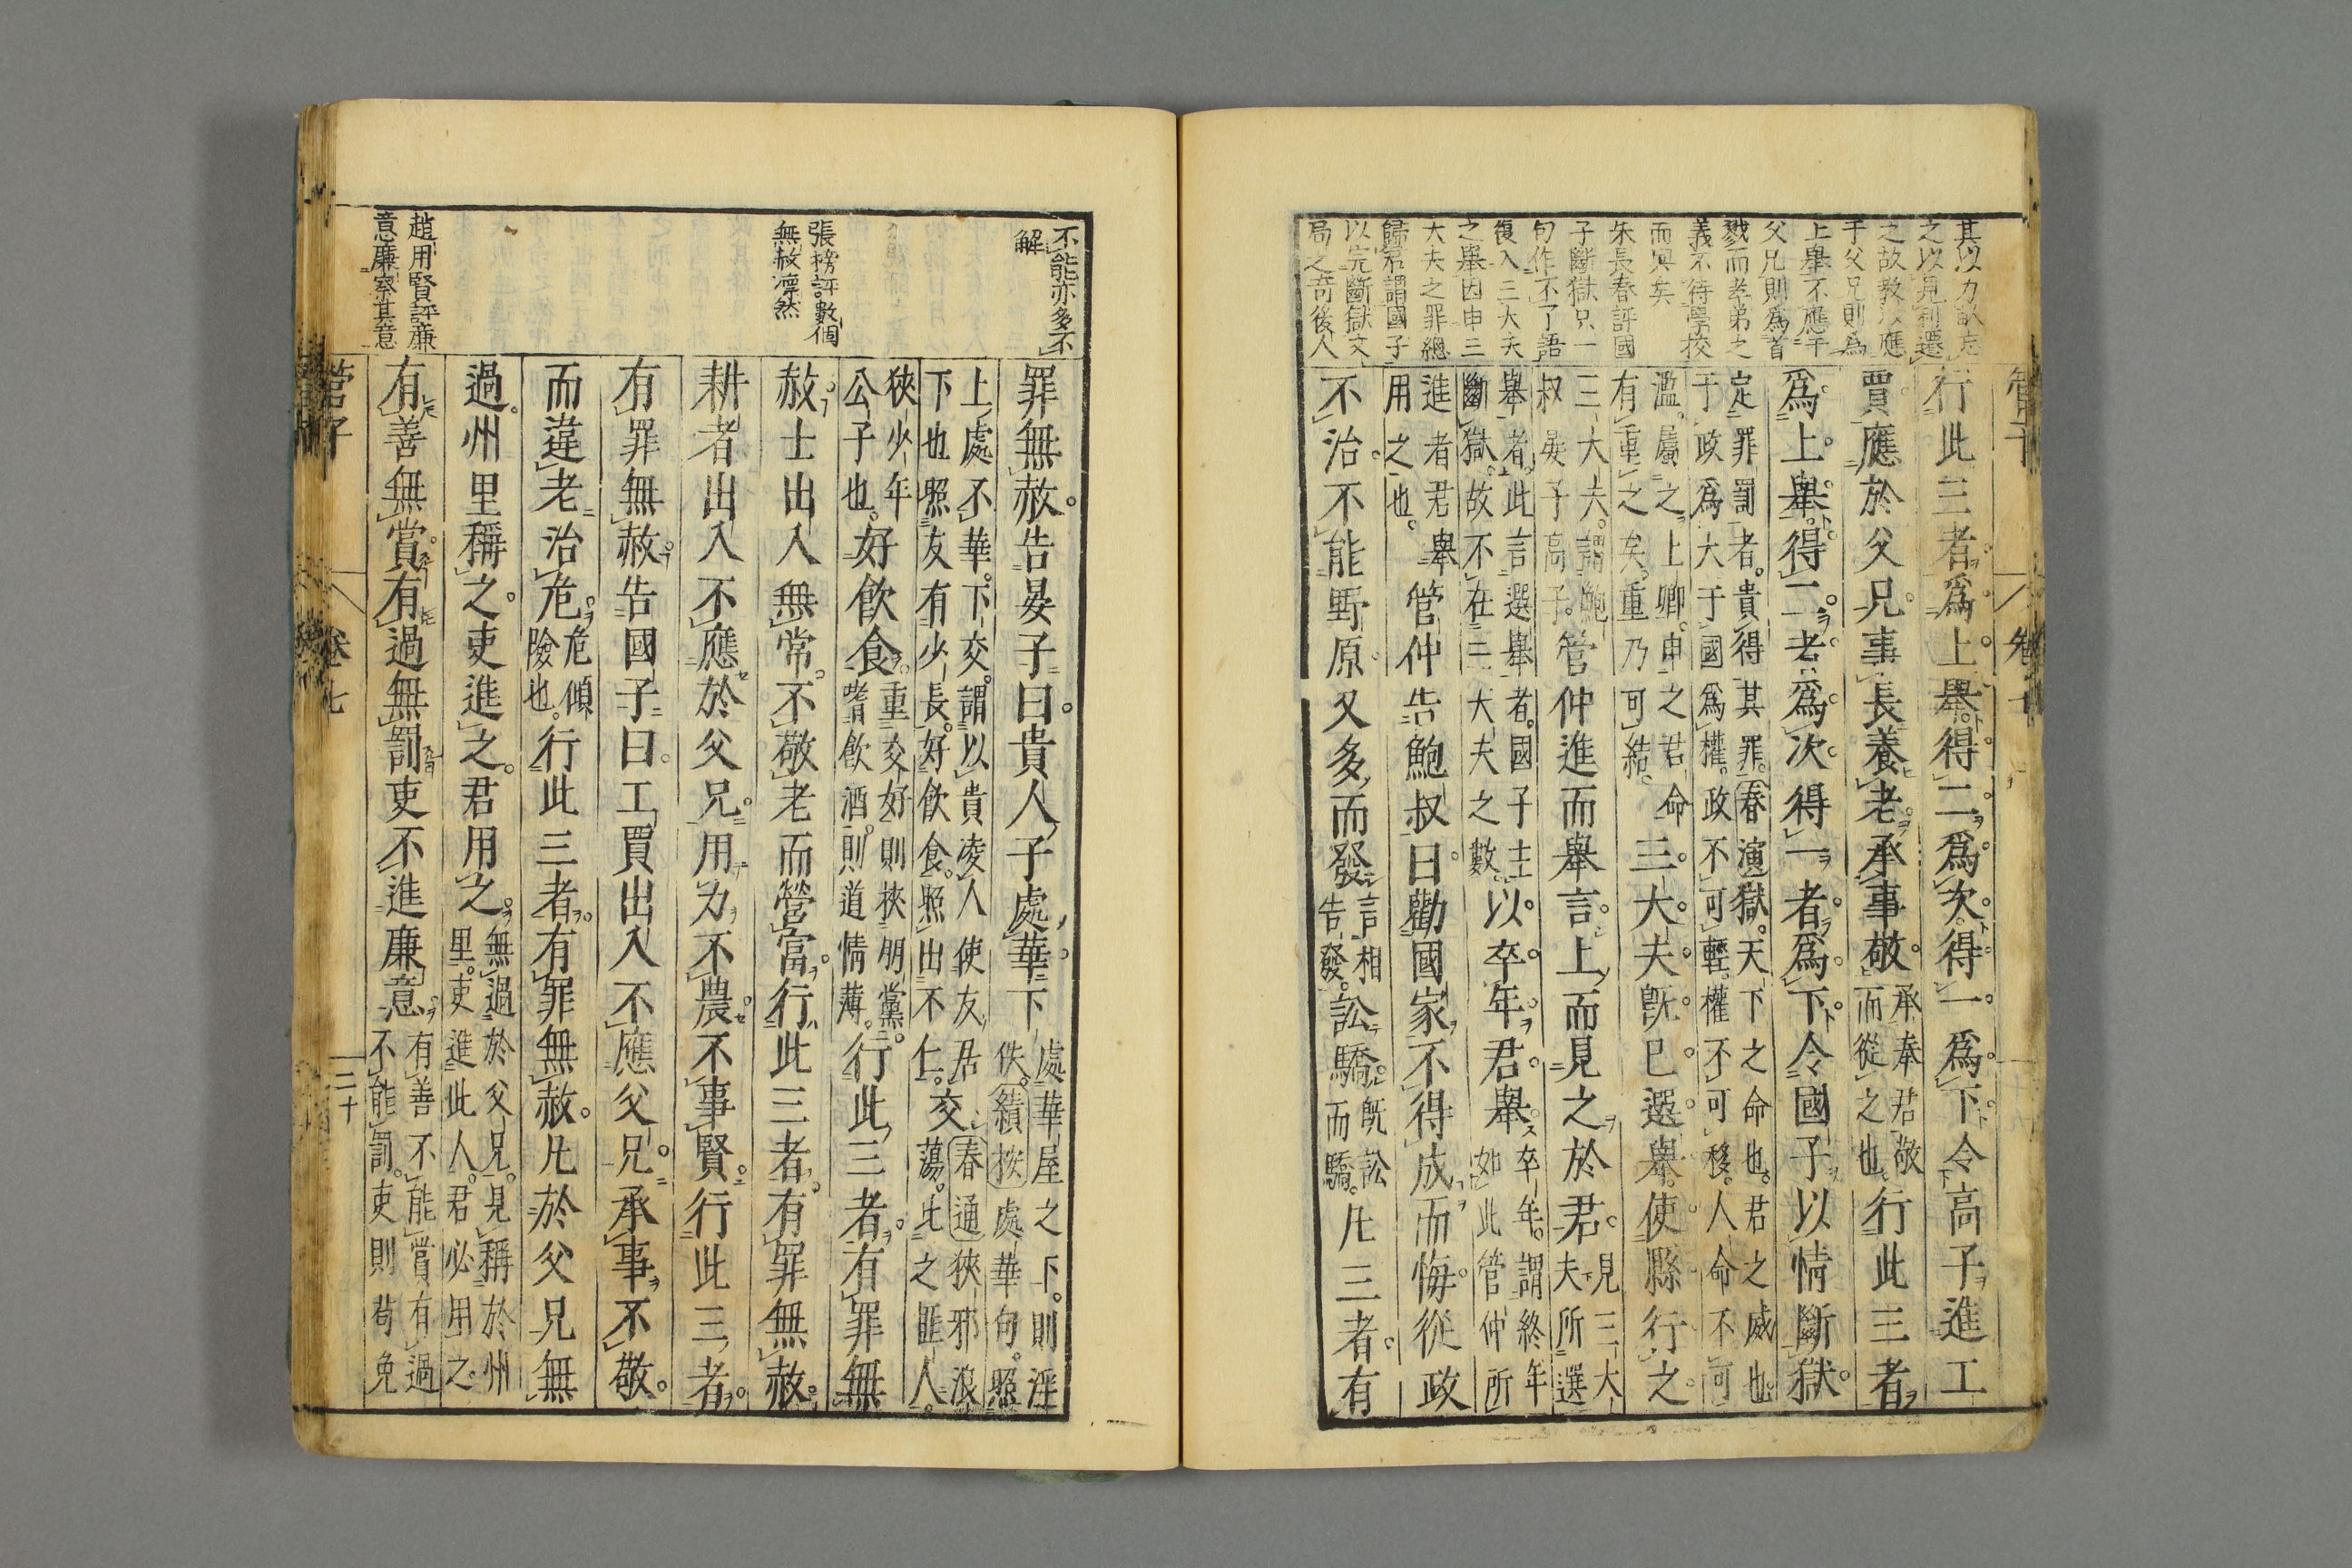 其以力
之以見利遷
之故教以應
于父兄則為
上舉不應于
父兄則為首
戮而孝弟之
義不待學校
而興矣
朱長春評國
子斷獄只一
句作不了語
復入三大夫
之舉因申三
大夫之罪總
歸君謂國子
以完斷獄文
局之奇後人
行此三者爲上舉得二爲次得一爲下令高子進工
賈應於父兄事長養老承事敬
承奉君敬
而從之也
行此三者
爲上舉得二者爲次得一者爲下令國子以情斷獄
定罪罰者貴得其罪春演獄天下之命也君之威也
于政爲大于國爲權政不可輕權不可移人命不可
濫屬之上卿申之君命
有重之矣重乃可結
三大夫既已選舉使縣行之
三大夫謂鮑
叔晏子高子
管仲進而舉言上而見之於君
見三大
夫所選
舉者此言選舉者國子主
斷獄故不在三大夫之數
以卒年君舉
卒年謂終年
如此管仲所
進者君舉
用之也
管仲告鮑叔曰勸國家不得成而悔從政
不治不能野原又多而發
言相
告發
訟驕
既訟
而驕
凡三者有
管子
卷七
不能亦多不
解
張榜評數個
無赦凛然
趙用賢評廉
意廉察其意
罪無赦告晏子曰貴人子處華下
處華屋之下則淫
佚績按處華句照
上處不華下交謂以貴凌人使友居
下也照友有少長好飲食照出不仁
交
春通狹邪浪
蕩比之匪人
狹少年
公子也
好飲食
重交好則挾朋黨
嗜飲酒則道情薄
行此三者有罪無
赦士出入無常不敬老而營富行此三者有罪無赦
耕者出入不應於父兄用力不農不事賢行此三者
有罪無赦告國子曰工賈出入不應父兄承事不敬
而違老治危
危傾
險也
行此三者有罪無赦凡於父兄無
過州里稱之吏進之君用之
無過於父兄見稱於州
里吏進此人君必用之
有善無賞有過無罰吏不進廉意
有善不能賞有過
不能罰吏則苟免
管子
卷七
二十